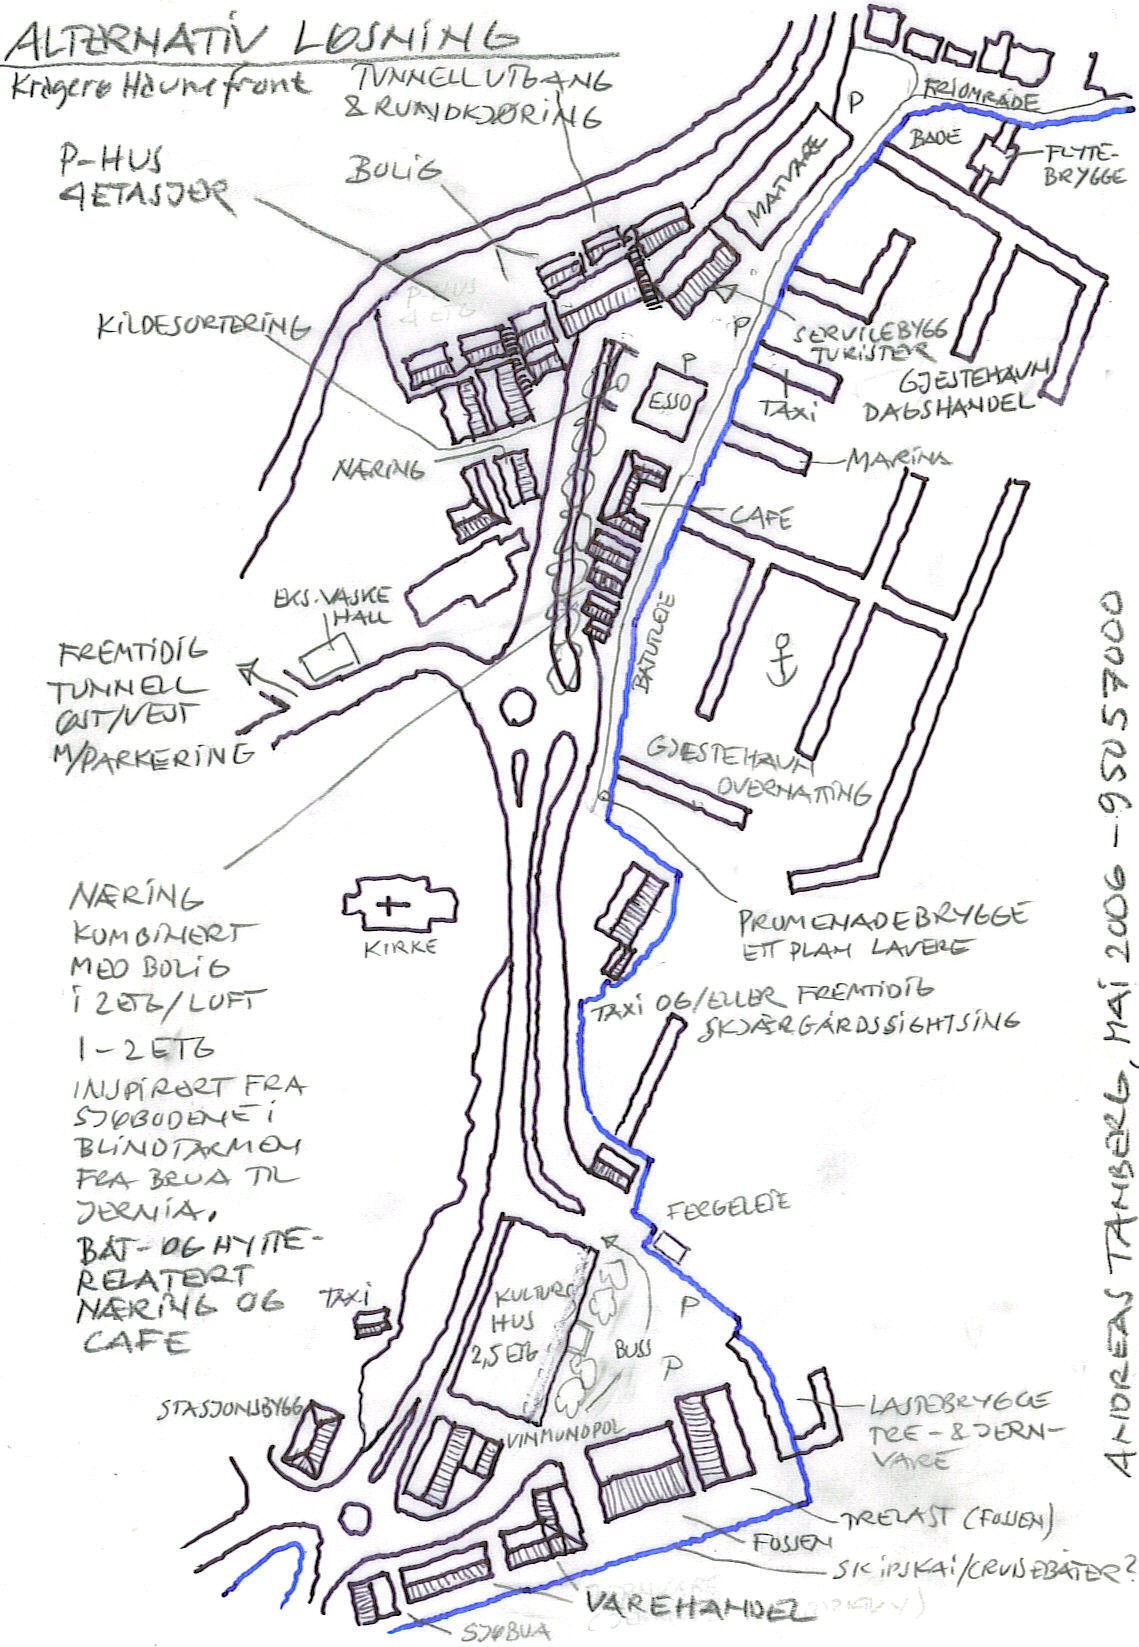 ALTERNATIV LØSNING
Kragerø Havnefront
TUNNELL UTGANG
& RUNDKJØRING
P-HUS
4 ETASJER
BOLIG
P-HUS
4 ETG
KILDESORTERING
NÆRING
EKS. VASKE
HALL
FREMTIDIG
TUNNELL
ØST/VEST
M/PARKERING
P
MATVARE
FRIOMRÅDE
BADE
FLYTE-
BRYGGE
P
SERVICEBYGG
TURISTER
P
ESSO
TAXI
GJESTEHAVN
DAGSHANDEL
MARINA
CAFE
BÅTUTLEIE
GJESTEHAVN
OVERNATTING
KIRKE
PROMENADEBRYGGE
ETT PLAN LAVERE
TAXI OG/ELLER FREMTIDIG
SKJÆRGÅRDSSIGHTSING
NÆRING
KOMBINERT
MED BOLIG
I 2 ETG/LOFT
1-2 ETG
INSPIRERT FRA
SJØBODENE I
BLINDTARMEN
FRA BRUA TIL
JERNIA.
BÅT- OG HYTTE-
RELATERT
NÆRING OG
CAFE
FERGELEIE
TAXI
KULTUR
HUS
2,5 ETG
BUSS
P
P
STASJONSBYGG
VINMONOPOL
LASTEBRYGGE
TRE- & JERN-
VARE
TRELAST (FOSSEN)
FOSSEN
SKIPSKAI/CRUISEBÅTER?
VAREHANDEL
SJØBUA
ANDREAS TAMBERG, MAI 2006 - 95057000